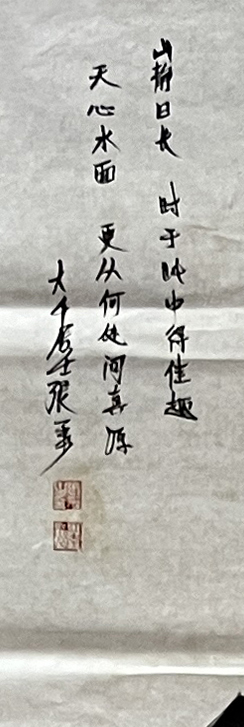 山静日长 时于此中得佳趣
天心水面 更从何处问真源
大千居士张爰